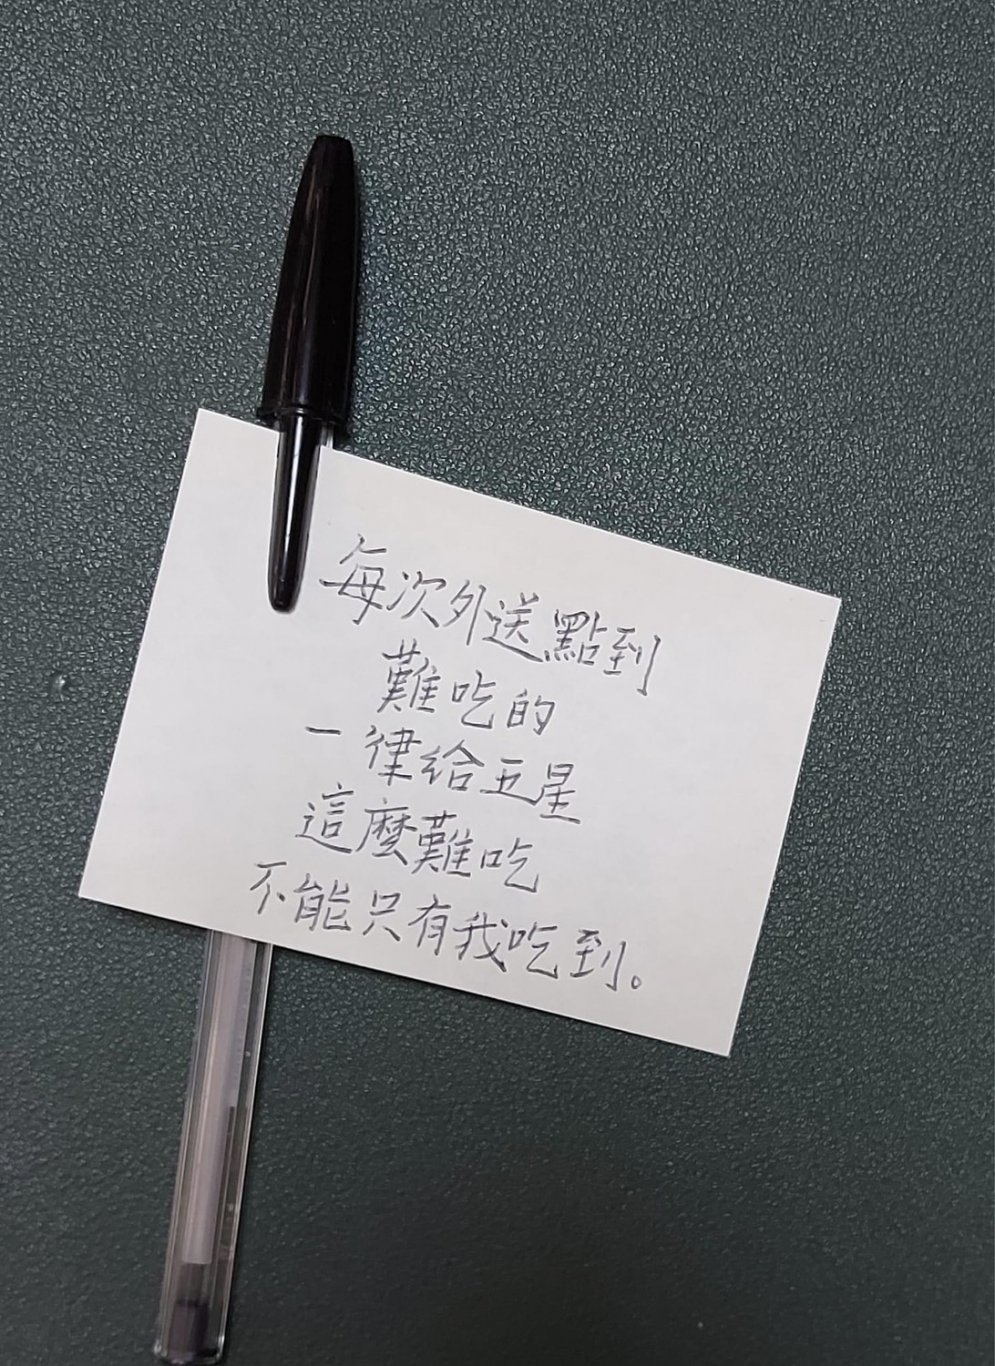 每次外送點到
難吃的
一律給五星
這麼難吃
不能只有我吃到。